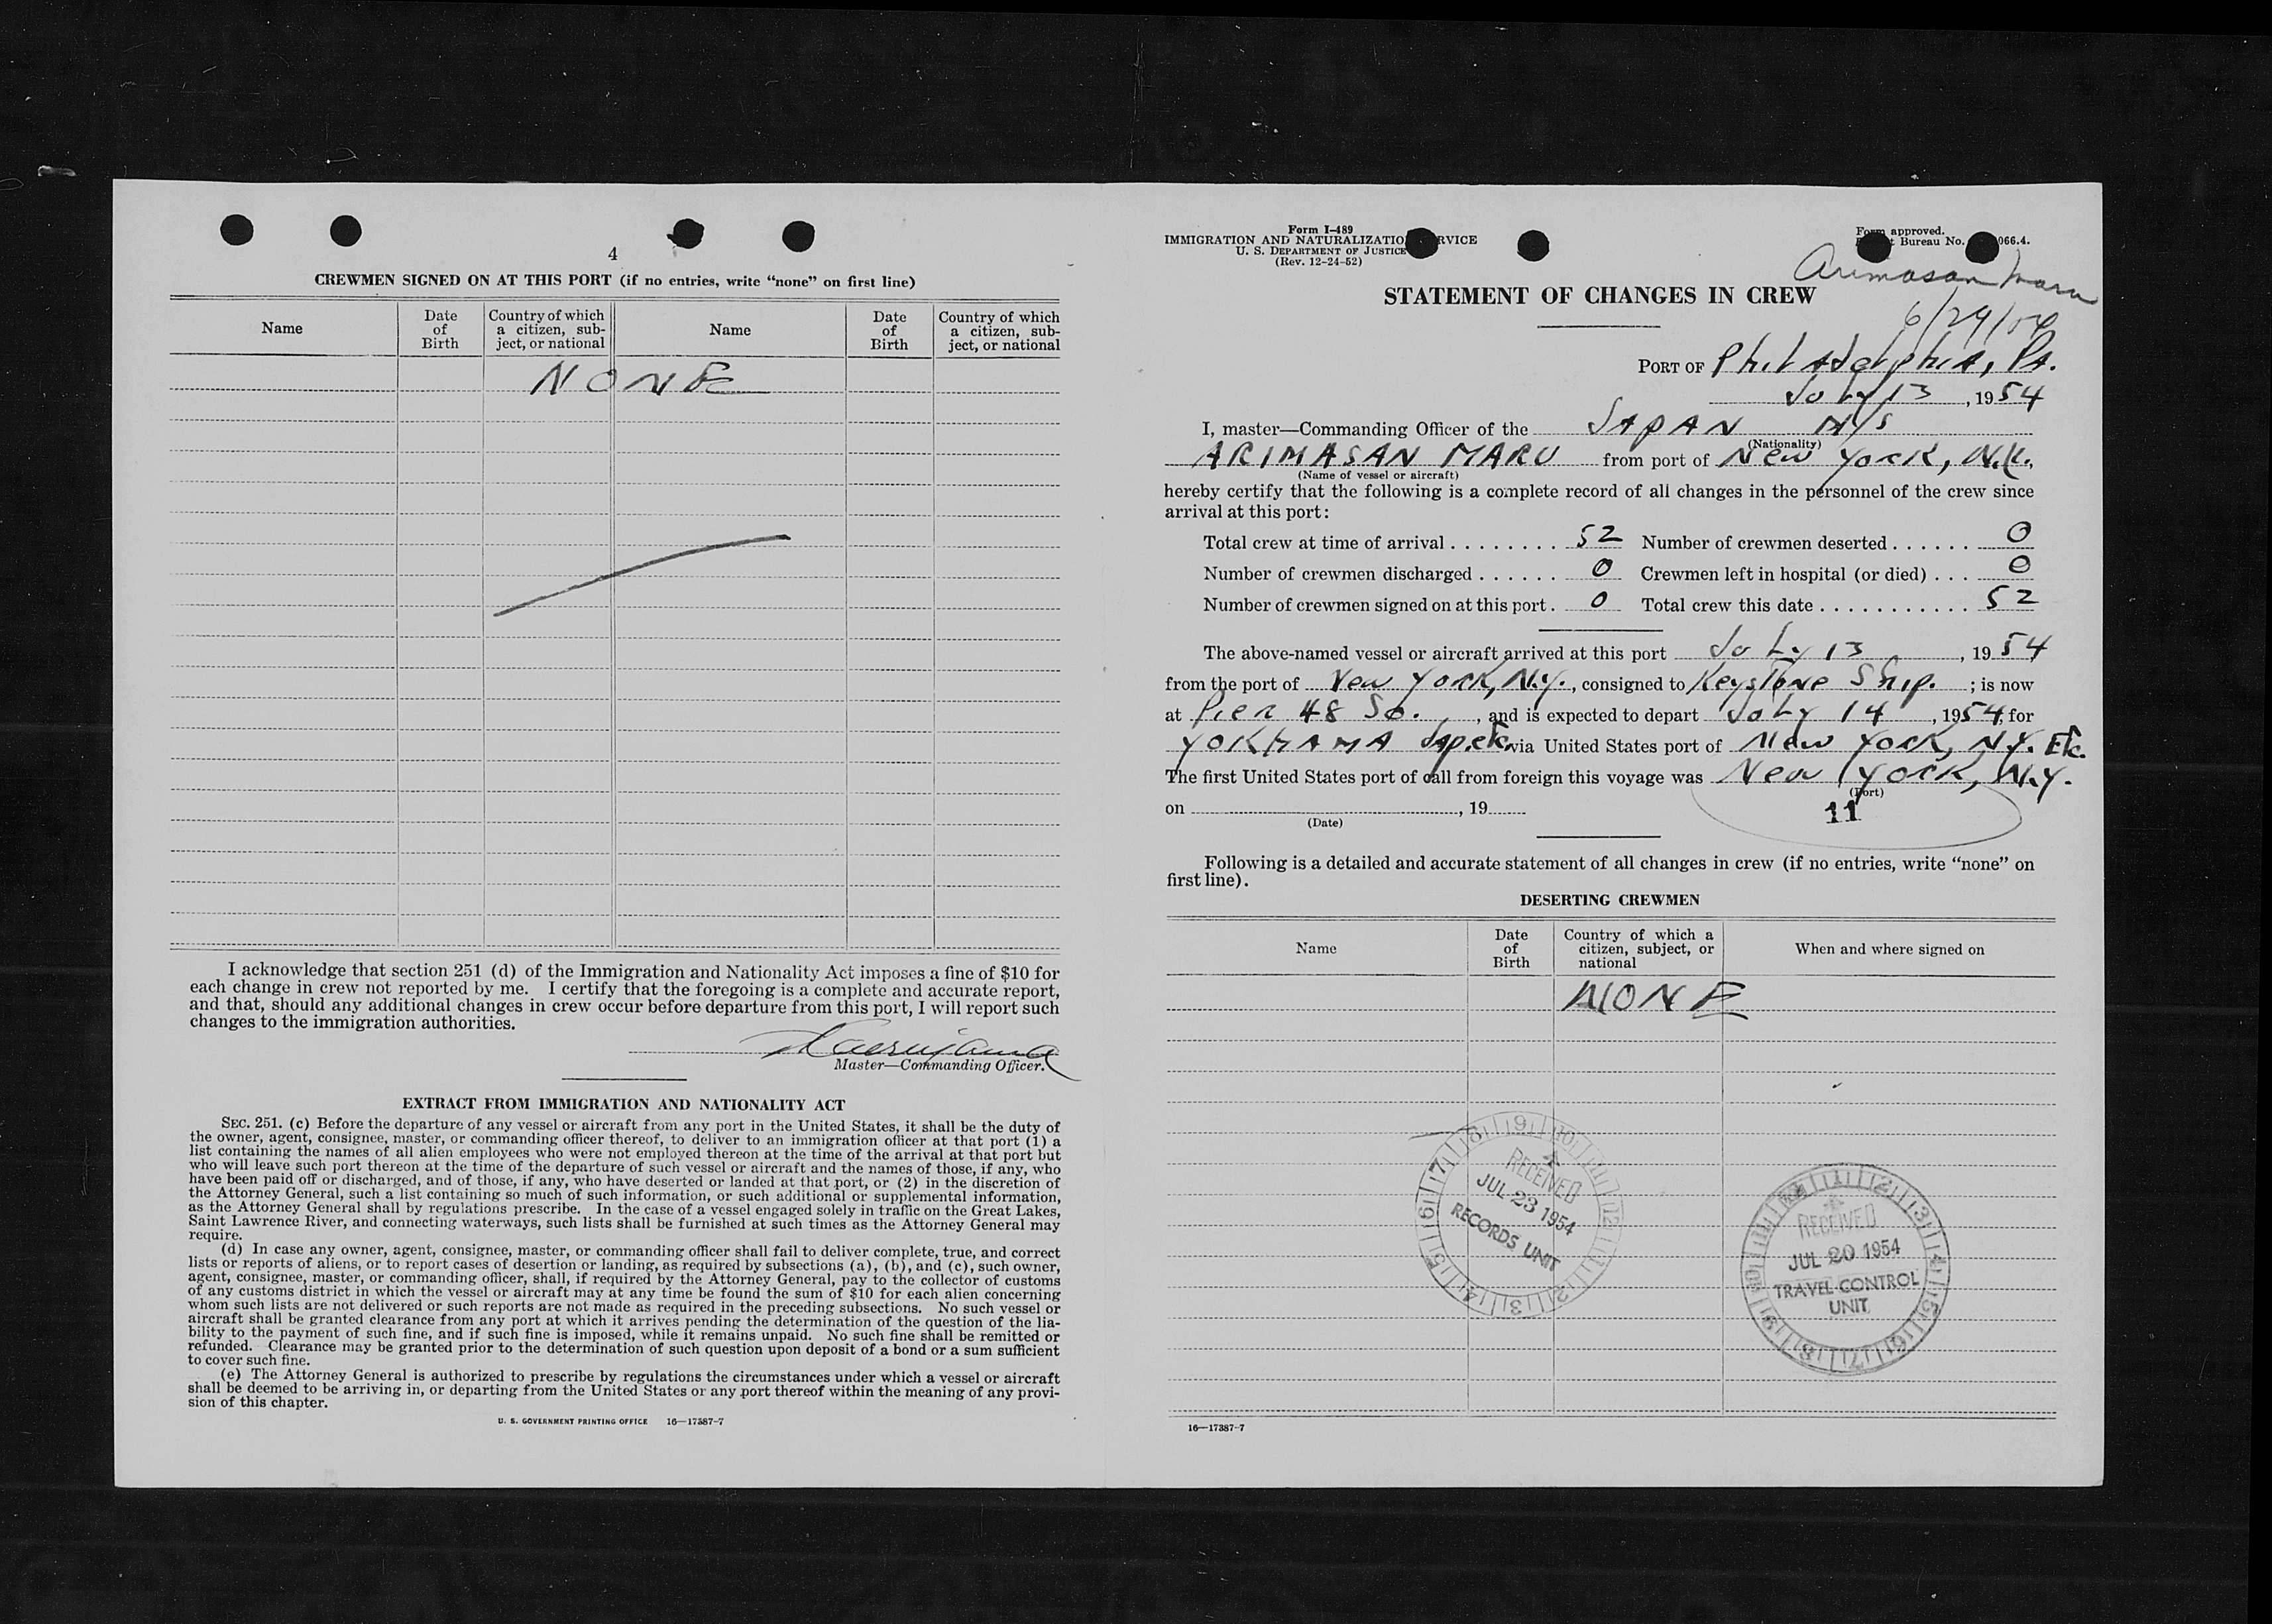 4
CREWMEN SIGNED ON AT THIS PORT (if no entries, write “none” on first line)
Name
Date of Birth
Country of which a citizen, sub-ject, or national
Name
Date of Birth
Country of which a citizen, sub-ject, or national
NONE
I acknowledge that section 251 (d) of the Immigration and Nationality Act imposes a fine of $10 for
each change in crew not reported by me. I certify that the foregoing is a complete and accurate report,
and that, should any additional changes in crew occur before departure from this port, I will report such
changes to the immigration authorities.
Master—Commanding Officer.
EXTRACT FROM IMMIGRATION AND NATIONALITY ACT
SEC. 251. (c) Before the departure of any vessel or aircraft from any port in the United States, it shall be the duty of
the owner, agent, consignee, master, or commanding officer thereof, to deliver to an immigration officer at that port (1) a
list containing the names of all alien employees who were not employed thereon at the time of the arrival at that port but
who will leave such port thereon at the time of the departure of such vessel or aircraft and the names of those, if any, who
have been paid off or discharged, and of those, if any, who have deserted or landed at that port, or (2) in the discretion of
the Attorney General, such a list containing so much of such information, or such additional or supplemental information,
as the Attorney General shall by regulations prescribe. In the case of a vessel engaged solely in traffic on the Great Lakes,
Saint Lawrence River, and connecting waterways, such lists shall be furnished at such times as the Attorney General may
require.
(d) In case any owner, agent, consignee, master, or commanding officer shall fail to deliver complete, true, and correct
lists or reports of aliens, or to report cases of desertion or landing, as required by subsections (a), (b), and (c), such owner,
agent, consignee, master, or commanding officer, shall, if required by the Attorney General, pay to the collector of customs
of any customs district in which the vessel or aircraft may at any time be found the sum of $10 for each alien concerning
whom such lists are not delivered or such reports are not made as required in the preceding subsections. No such vessel or
aircraft shall be granted clearance from any port at which it arrives pending the determination of the question of the lia-
bility to the payment of such fine, and if such fine is imposed, while it remains unpaid. No such fine shall be remitted or
refunded. Clearance may be granted prior to the determination of such question upon deposit of a bond or a sum sufficient
to cover such fine.
(e) The Attorney General is authorized to prescribe by regulations the circumstances under which a vessel or aircraft
shall be deemed to be arriving in, or departing from the United States or any port thereof within the meaning of any provi-
sion of this chapter.
U. S. GOVERNMENT PRINTING OFFICE 16—17387-7
Form I-489
IMMIGRATION AND NATURALIZATIO RVICE
U. S. DEPARTMENT OF JUSTICE
(Rev. 12-24-52)
Form approved.
t Bureau No. 066.4.
Arimasan Maru
6/29/54
STATEMENT OF CHANGES IN CREW
PORT OF Philadelphia, Pa.
July 13, 1954
I, master—Commanding Officer of the JAPAN M/S
(Nationality)
ARIMASAN MARU from port of New York, N.Y.,
(Name of vessel or aircraft)
hereby certify that the following is a complete record of all changes in the personnel of the crew since
arrival at this port:
Total crew at time of arrival ........ 52 Number of crewmen deserted ...... 0
Number of crewmen discharged ...... 0 Crewmen left in hospital (or died) ... 0
Number of crewmen signed on at this port. 0 Total crew this date ........... 52
The above-named vessel or aircraft arrived at this port July 13, 1954
from the port of New York, N.Y., consigned to Keystone Ship. ; is now
at Pier 48 So., and is expected to depart July 14, 1954, for
YOKHAMA Jap. etc. via United States port of New York, N.Y. Etc.
The first United States port of call from foreign this voyage was New York, N.Y.
(Port)
on , 19
11
(Date)
Following is a detailed and accurate statement of all changes in crew (if no entries, write “none” on
first line).
DESERTING CREWMEN
Name
Date of Birth
Country of which a citizen, subject, or national
When and where signed on
NONE
RECEIVED
JUL 23 1954
RECORDS UNIT
RECEIVED
JUL 20 1954
TRAVEL CONTROL
UNIT
16—17387-7